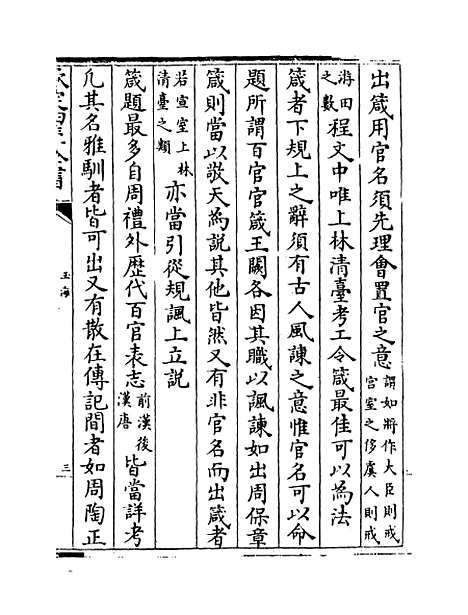 出箴用官名須先理會置官之意謂如將作大臣則戒宫室之侈虞人則戒
游田之數程文中唯上林清臺考工令箴最佳可以為法
箴者下規上之辭須有古人風諫之意惟官名可以命
題所謂百官官箴王闕各因其職以諷諫如出周保章
箴則當以敬天為說其他皆然又有非官名而出箴者
若宣室上林清臺之類亦當引從規諷上立説
箴題最多自周禮外歴代百官表志前漢後漢唐皆當詳考
凡其名雅馴者皆可出又有散在傳記間者如周陶正
欽定四庫全書
玉海
三